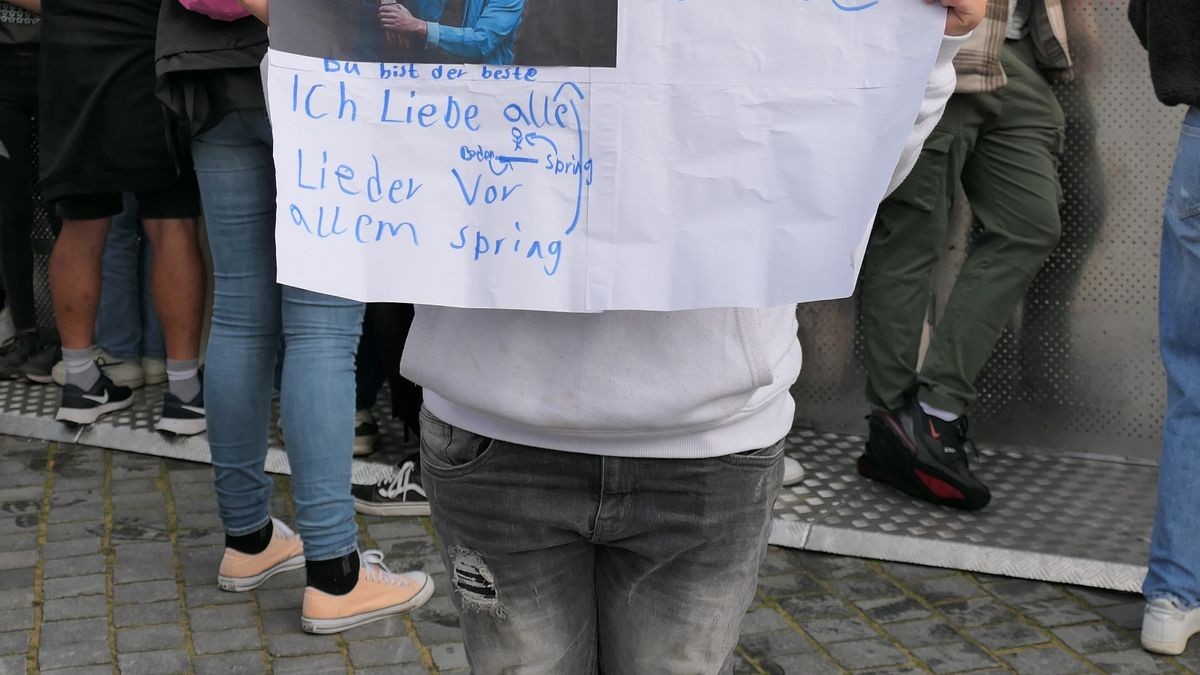 Du bist der beste
Ich Liebe alle
Boden spring
Lieder Vor
allem spring